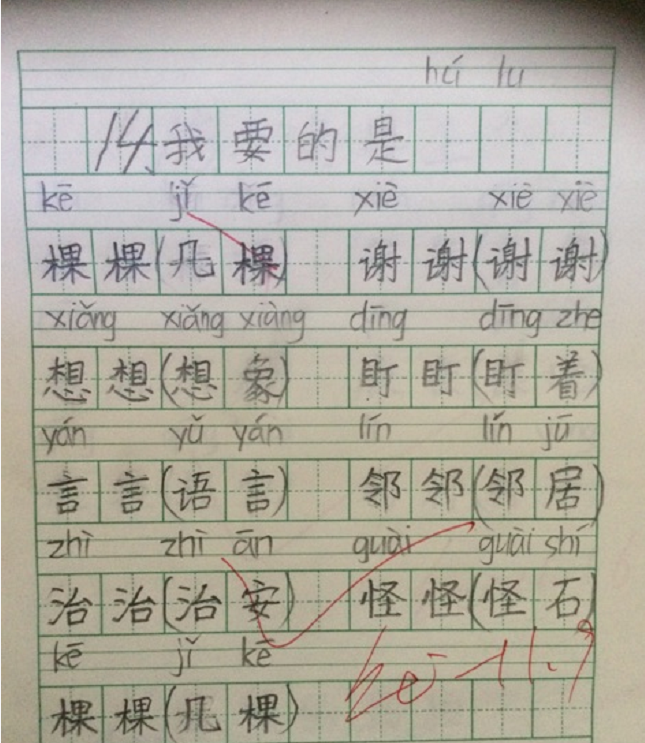 hú lu
14、我要的是
kē jǐ kē xiè xiè xiè
棵棵(几棵) 谢谢(谢谢)
xiǎng xiǎng xiàng dīng dīng zhe
想想(想象) 盯盯(盯着)
yán yǔ yán lín lín jū
言言(语言) 邻邻(邻居)
zhì zhì ān guài guài shí
治治(治安) 怪怪(怪石)
kē jǐ kē
棵棵(几棵)